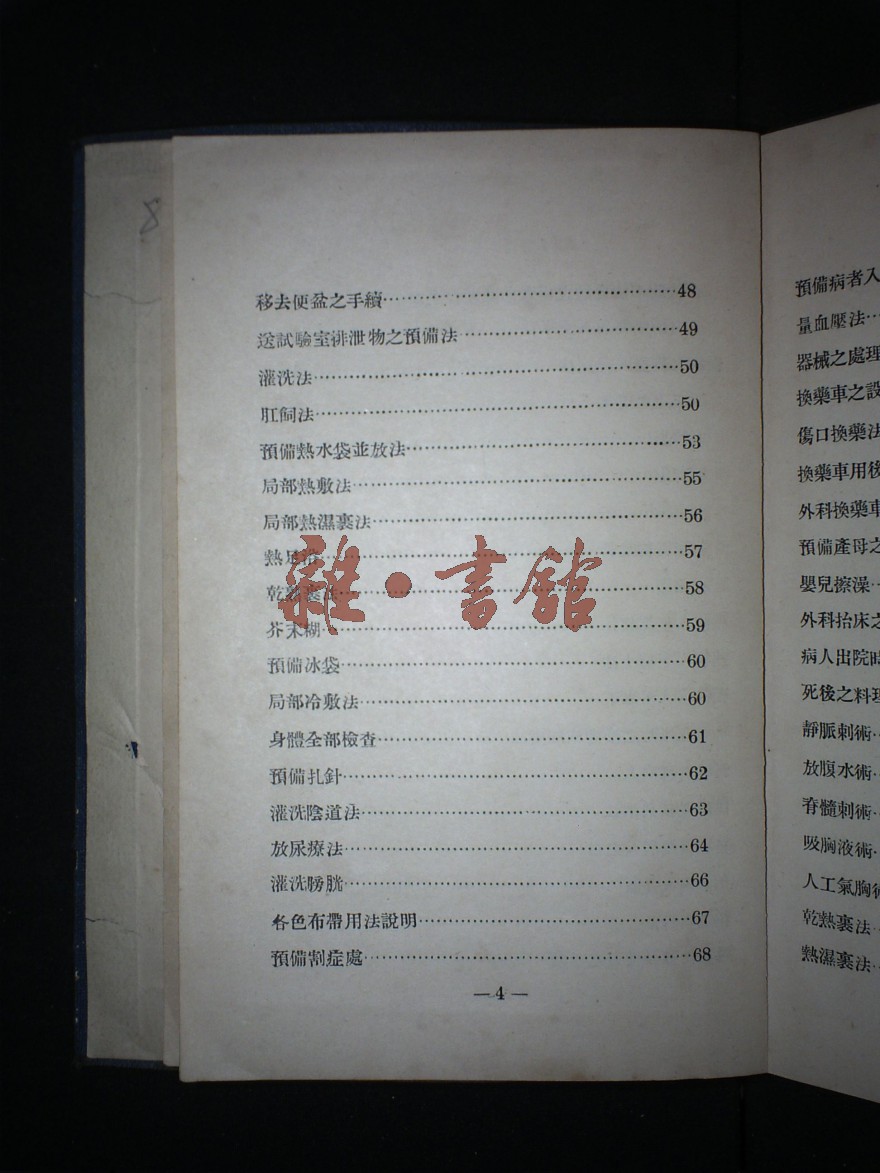 8
移去便盆之手續……48
送試驗室排泄物之預備法……49
灌洗法……50
肛飼法……50
預備熱水袋並放法……53
局部熱敷法……55
局部熱濕裹法……56
熱足浴……57
乾熱裹法……58
芥末糊……59
預備冰袋……60
局部冷敷法……60
身體全部檢查……61
預備扎針……62
灌洗陰道法……63
放尿療法……64
灌洗膀胱……66
各色布帶用法說明……67
預備割症處……68
—4—
雜·書館
預備病者入
量血壓法…
器械之處理
換藥車之設
傷口換藥法
換藥車用後
外科換藥車
預備產母之
嬰兒擦澡…
外科抬床之
病人出院時
死後之料理
靜脈刺術…
放腹水術…
脊髓刺術…
吸胸液術…
人工氣胸術
乾熱裹法…
熱濕裹法…